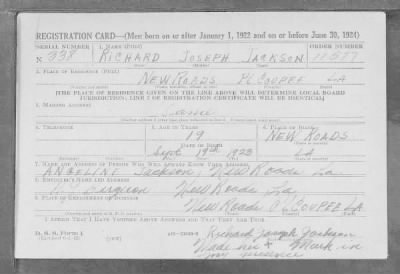 REGISTRATION CARD—(Men born on or after January 1, 1922 and on or before June 30, 1924)
SERIAL NUMBER 1. NAME (Print) ORDER NUMBER
N 338 RICHARD JOSEPH JACKSON 11577
2. PLACE OF RESIDENCE (Print)
NEW ROADS Pt COUPEE LA
[THE PLACE OF RESIDENCE GIVEN ON THE LINE ABOVE WILL DETERMINE LOCAL BOARD
JURISDICTION; LINE 2 OF REGISTRATION CERTIFICATE WILL BE IDENTICAL]
3. MAILING ADDRESS
Same
4. TELEPHONE 5. AGE IN YEARS 6. PLACE OF BIRTH
19 NEW ROADS
DATE OF BIRTH
Sept 19th 1923 LA
7. NAME AND ADDRESS OF PERSON WHO WILL ALWAYS KNOW YOUR ADDRESS
ANGELINE Jackson, New Roads La
8. EMPLOYER'S NAME AND ADDRESS
Ferguson New Roads La
9. PLACE OF EMPLOYMENT OR BUSINESS
New Roads Pt COUPEE LA
I AFFIRM THAT I HAVE VERIFIED ABOVE ANSWERS AND THAT THEY ARE TRUE.
D. S. S. Form 1 Richard Joseph Jackson
Made his X Mark in
my presence